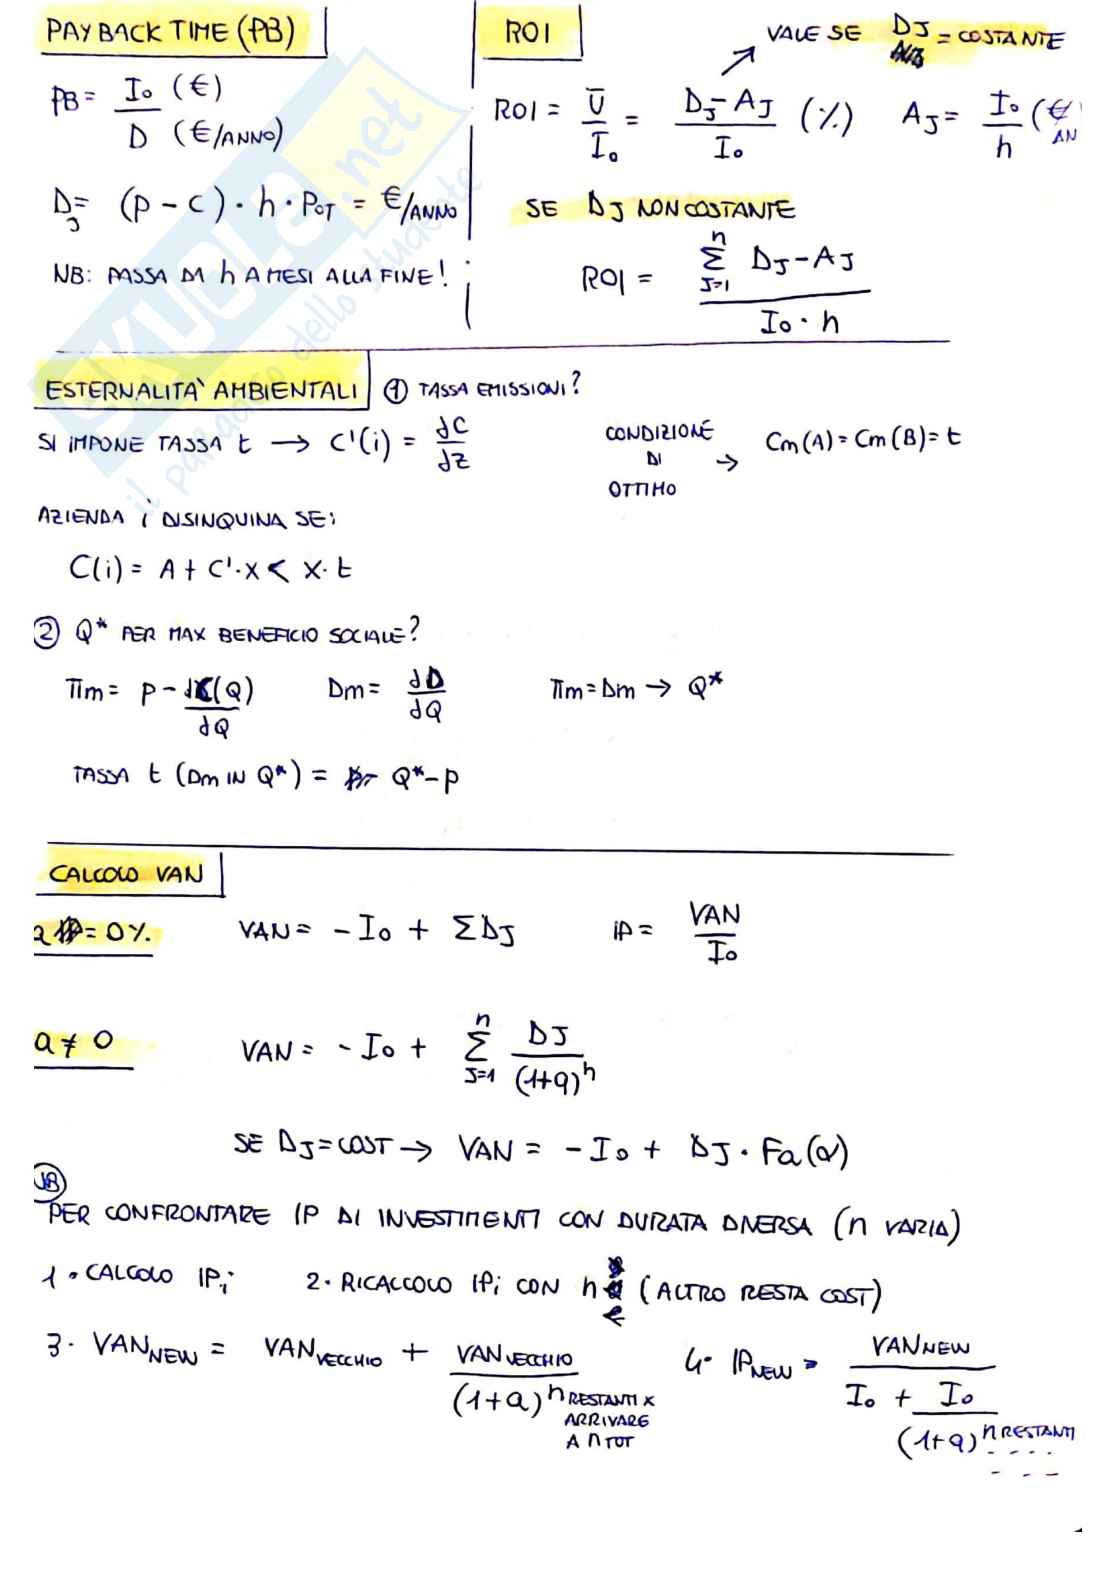 PAYBACK TIME (PB)
PB = I₀ (€) / D (€/ANNO)
DJ = (p - c) · h · POT = €/ANNO
NB: PASSA DA h A MESI ALLA FINE!
ROI
VALE SE DJ = COSTANTE
ROI = U̅ / I₀ = (DJ - AJ) / I₀ (%) AJ = I₀ / n (€/AN
SE DJ NON COSTANTE
ROI = Σ(J=1, n) DJ - AJ / I₀ · n
ESTERNALITA' AMBIENTALI ① TASSA EMISSIONI?
SI IMPONE TASSA t → C'(i) = dC/dz CONDIZIONE DI OTTIMO → Cm(A) = Cm(B) = t
AZIENDA i DISINQUINA SE:
C(i) = A + C'·x < x·t
② Q* PER MAX BENEFICIO SOCIALE?
Πm = p - dC(Q)/dQ Dm = dD/dQ Πm = Dm → Q*
TASSA t (Dm IN Q*) = Q* - p
CALCOLO VAN
a = 0% VAN = - I₀ + ΣDJ IP = VAN / I₀
a ≠ 0 VAN = - I₀ + Σ(J=1, n) DJ / (1+a)ⁿ
SE DJ = COST → VAN = - I₀ + DJ · Fa(α)
NB
PER CONFRONTARE IP DI INVESTIMENTI CON DURATA DIVERSA (n VARIA)
1. CALCOLO IPi 2. RICALCOLO IPi CON n (ALTRO RESTA COST)
3. VAN NEW = VAN VECCHIO + VAN VECCHIO / (1+a)^n RESTANTI X ARRIVARE A n TOT
4. IP NEW = VAN NEW / I₀ + I₀ / (1+a)^n RESTANTI
SKUOLA.net
il paradiso dello studente